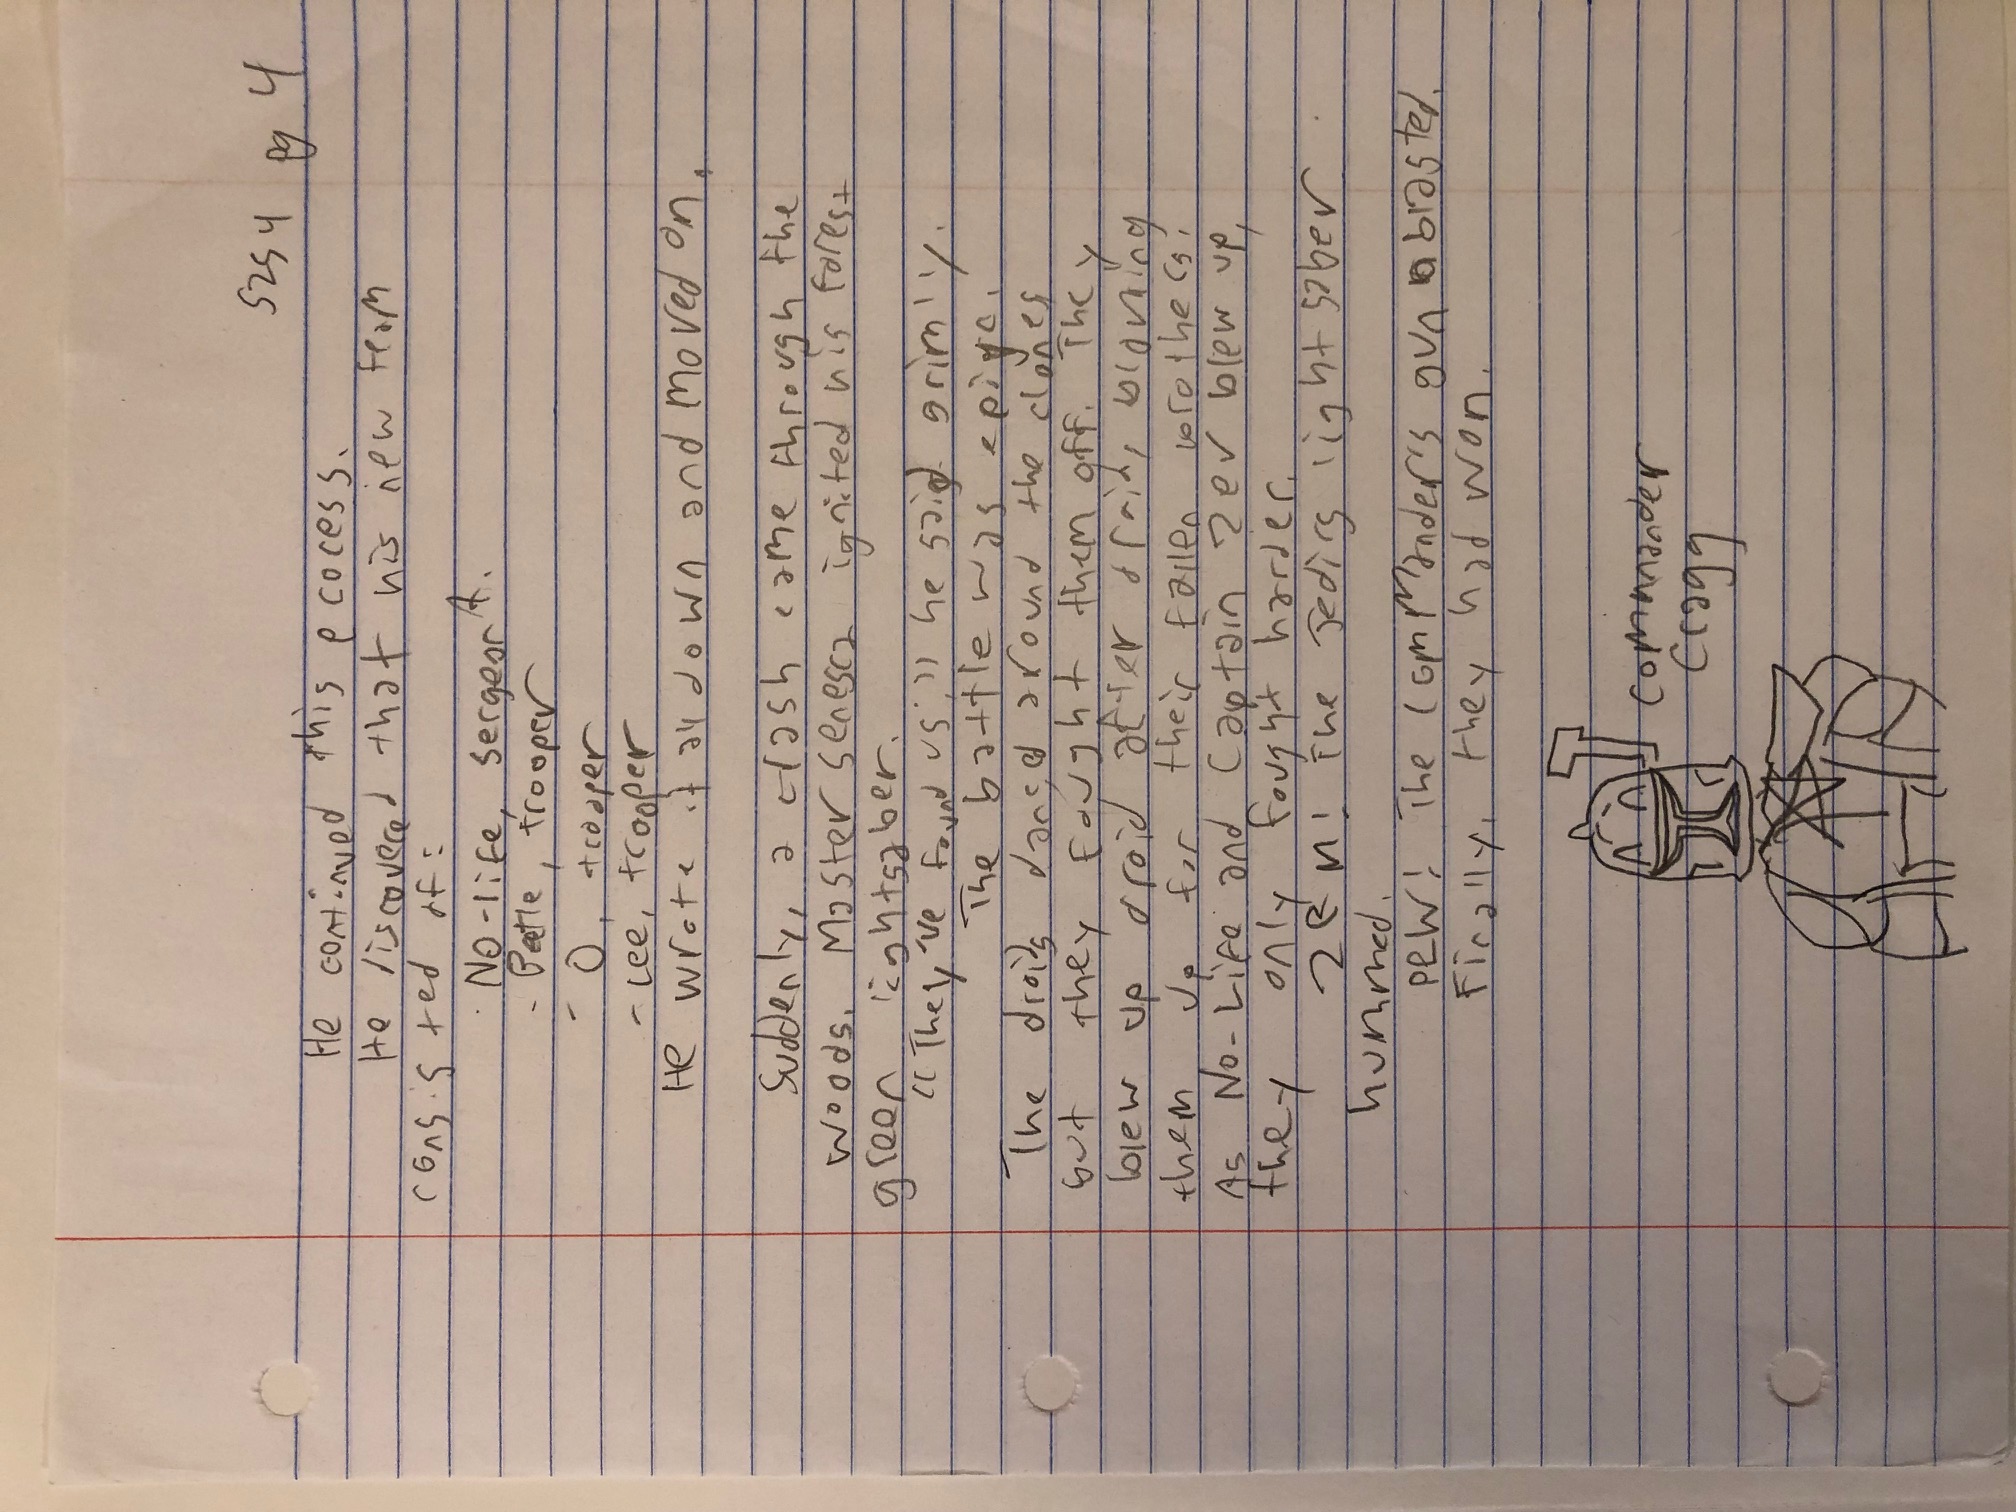 S2S4 pg 4
He continued this process.
He discovered that his new team
consisted of:
- No-life, sergeant.
- Beetle, trooper
- O, trooper
- Lee, trooper
He wrote it all down and moved on.
Suddenly, a crash came through the
woods. Master Senesca ignited his forest
green lightsaber.
"They've found us," he said grimly.
The battle was epic.
The droids danced around the clones
but they fought them off. They
blew up droid after droid, blowing
them up for their fallen brothers.
As No-Life and Captain Zev blew up,
they only fought harder.
ZEM! The Jedi's lightsaber
hummed.
PEW! The Commander's gun blasted.
Finally, they had won.
Commander
Cragg